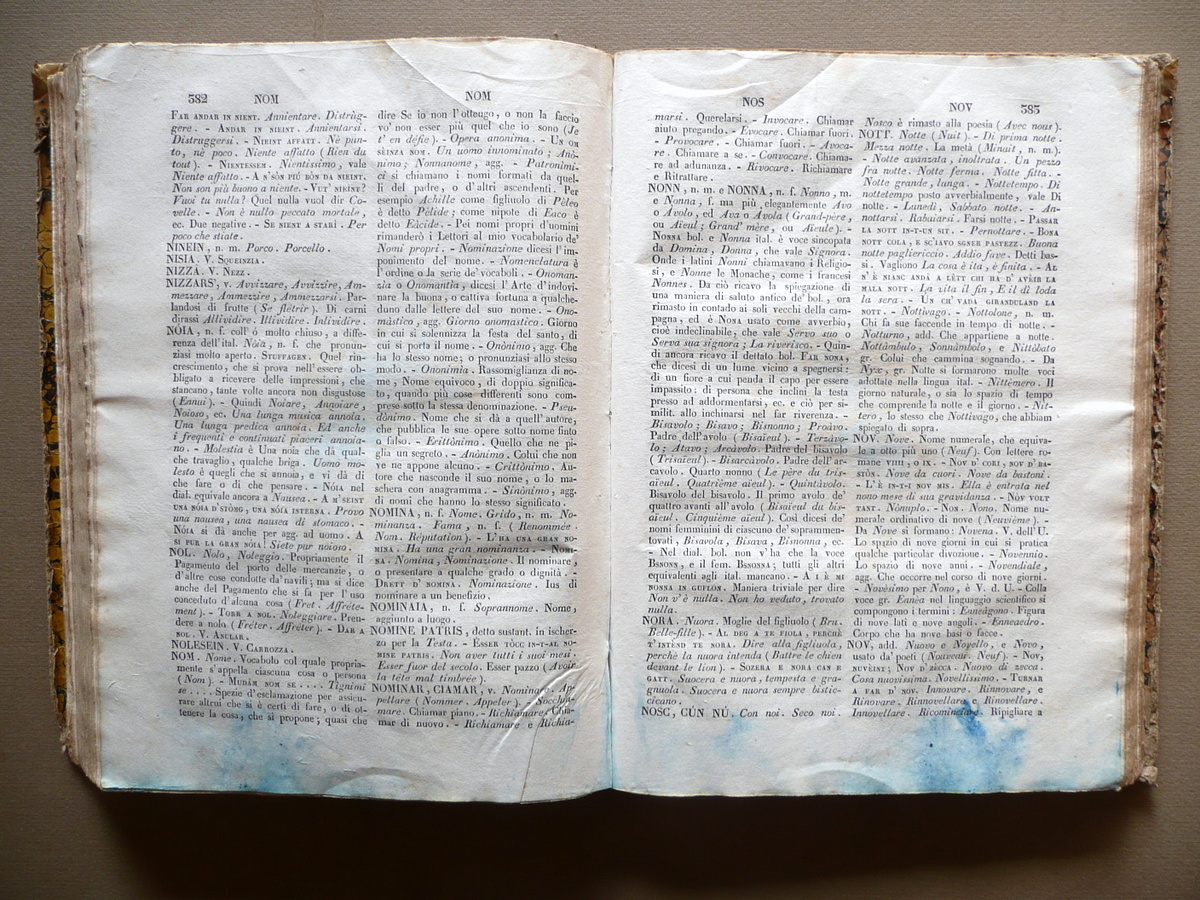 382 NOM
NOM
FAR ANDAR IN NIENT. Annientare. Distrùg-
gere. - ANDAR IN NIEINT. Annientarsi.
Distruggersi. - NIEINT AFFATT. Nè pun-
to, nè poco. Niente affatto (Rien du
tout). - NIENTESSEM. Nientissimo, vale
Niente affatto. - A N'SÒN PIÙ BÒN DA NIEINT.
Non son più buono a niente. - VUT' NIEINT?
Vuoi tu nulla? Quel nulla vuol dir Co-
velle. - Non è nullo peccato mortale,
ec. Due negative. - SE NIENT A STARÌ. Per
poco che stiate.
NINEIN, n. m. Porco. Porcello.
NISIA. V. SQUEINZIA.
NIZZÀ. V. NEZZ.
NIZZARS', v. Avvizzare, Avvizzire, Am-
mezzare, Ammezzire, Ammezzarsi. Par-
landosi di frutte (Se flétrir). Di carni
dirassi Allividire. Illividire. Inlividire.
NÓIA, n. f. coll' ó molto chiuso, a diffe-
renza dell'ital. Nòia, n. f. che pronun-
ziasi molto aperto. STUFFAGEN. Quel rin-
crescimento, che si prova nell'essere ob-
bligato a ricevere delle impressioni, che
stancano, tante volte ancora non disgustose
(Ennui). - Quindi Noiare, Annoiare,
Noioso, ec. Una lunga musica annoia.
Una lunga predica annoia. Ed anche
i frequenti e continuati piaceri annoia-
no. - Molestia è Una noia che dà qual-
che travaglio, qualche briga. Uomo mo-
lesto è quegli che si annoia, e vi dà di
che fare o di che pensare. - NÓIA nel
dial. equivale ancora a Nausea. - A M'SEINT
UNA NÓIA D'STOMG, UNA NÓIA INTERNA. Provo
una nausea, una nausea di stomaco. -
NÓIA si dà anche per agg. ad uomo. A
SI PUR LA GRAN NÓIA! Siete pur noioso.
NOL. Nolo, Noleggio. Propriamente il
Pagamento del porto delle mercanzie, o
d'altre cose condotte da'navili; ma si dice
anche del Pagamento che si fa per l'uso
conceduto d'alcuna cosa (Fret. Affréte-
ment). - TORR A NOL. Noleggiare. Pren-
dere a nolo (Fréter. Affréter). - DAR A
NOL. V. ANCLAR.
NOLESEIN. V. CAROZZA.
NOM. Nome. Vocabolo col quale propria-
mente s'appella ciascuna cosa o persona
(Nom). - MUDÀM NOM SE .... Tignimi
se .... Spezie d'esclamazione per assicu-
rare altrui che si è certi di fare, o di ot-
tenere la cosa, che si propone; quasi che
dire Se io non l'ottengo, o non la faccio
vo' non esser più quel che io sono (Je
t'en défie). - Opera anonima. - UN OM
SÈINZA NOM. Un uomo innominato; Anò-
nimo; Nonnanome, agg. - Patronìmi-
ci si chiamano i nomi formati da quel-
li del padre, o d'altri ascendenti. Per
esempio Achille come figliuolo di Pèleo
è detto Pèlide; come nipote di Eaco è
detto Eàcide. - Pei nomi propri d'uomini
rimanderò i Lettori al mio vocabolario de'
Nomi propri. - Nominazione dicesi l'im-
ponimento del nome. - Nomenclatura è
l'ordine o la serie de' vocaboli. - Onoman-
zìa o Onomantìa, dicesi l'Arte d'indovi-
nare la buona, o cattiva fortuna a qualche-
duno dalle lettere del suo nome. - Ono-
màstico, agg. Giorno onomastico. Giorno
in cui si solennizza la festa del santo, di
cui si porta il nome. - Onònimo, agg. Che
ha lo stesso nome; o pronunziasi allo stesso
modo. - Ononimìa. Rassomiglianza di no-
me, Nome equivoco, di doppio significa-
to, quando più cose differenti sono com-
prese sotto la stessa denominazione. - Pseu-
dònimo. Nome che si dà a quell'autore,
che pubblica le sue opere sotto nome finto
o falso. - Erittònimo. Quello che ne pi-
glia un segreto. - Anònimo. Colui che non
ve ne appone alcuno. - Crittònimo. Au-
tore che nasconde il suo nome, o lo ma-
schera con anagramma. - Sinònimo, agg.
di nomi che hanno lo stesso significato.
NOMINA, n. f. Nome. Grido, n. m. No-
minanza. Fama, n. f. (Renommée.
Nom. Réputation). - L'HA UNA GRAN NO-
MINA. Ha una gran nominanza. - NOMI-
NA. Nomina, Nominazione. Il nominare,
o presentare a qualche grado o dignità. -
DRETT D' NOMINA. Nominazione. Ius di
nominare a un benefizio.
NOMINAIA, n. f. Soprannome. Nome,
aggiunto a luogo.
NOMINE PATRIS, detto sustant. in ischer-
zo per la Testa. - ÈSSER TÒCC IN-T-AL NO-
MINE PATRIS. Non aver tutti i suoi mesi.
Esser fuor del secolo. Esser pazzo (Avoir
la tête mal timbrée).
NOMINAR, CIAMAR, v. Nominare. Ap-
pellare (Nommer. Appeler). - Socchia-
mare. Chiamar piano. - Richiamare. Chia-
mar di nuovo. - Richiamare e Richia-
NOS
NOV 383
marsi. Querelarsi. - Invocare. Chiamar
aiuto pregando. - Evocare. Chiamar fuori.
- Provocare. - Chiamar fuori. - Avoca-
re. Chiamare a se. - Convocare. Chiama-
re ad adunanza. - Rivocare. Richiamare
e Ritrattare.
NONN, n. m. e NONNA, n. f. Nonno, m.
e Nonna, f. ma più elegantemente Avo
o Avolo, ed Ava o Avola (Grand-père,
ou Aieul; Grand' mère, ou Aieule). -
NONNA bol. e Nonna ital. è voce sincopata
da Domina, Donna, che vale Signora.
Onde i latini Nonni chiamavano i Religio-
si, e Nonne le Monache, come i francesi
Nonnes. Da ciò ricavo la spiegazione di
una maniera di saluto antico de' bol., ora
rimasto in contado ai soli vecchi della cam-
pagna, ed è NONA usato come avverbio,
cioè indeclinabile, che vale Servo suo o
Serva sua signora; La riverisco. - Quin-
di ancora ricavo il dettato bol. FAR NONA,
che dicesi di un lume vicino a spegnersi:
di un fiore a cui penda il capo per essere
impassito; di persona che inclini la testa
presso ad addormentarsi, ec. e ciò per si-
milit. allo inchinarsi nel far riverenza. -
Bisavolo; Bisavo; Bisnonno; Proàvo.
Padre dell'avolo (Bisaïeul). - Terzàvo-
lo; Atavo; Arcàvolo. Padre del bisavolo
(Trisaïeul). - Bisarcàvolo. Padre dell'ar-
cavolo. Quarto nonno (Le père du tris-
aieul. Quatrième aieul). - Quintàvolo.
Bisavolo del bisavolo. Il primo avolo de'
quattro avanti all'avolo (Bisaieul du bis-
aieul. Cinquième aieul). Così dicesi de'
nomi femminini di ciascuno de'soprammen-
tovati, Bisavola, Bisava, Bisnonna, ec.
- Nel dial. bol. non v'ha che la voce
BSNONN, e il fem. BSNONNA; tutti gli altri
equivalenti agli ital. mancano. - A I È MÌ
NONNA IN GUFLON. Maniera triviale per dire
Non v'è nulla. Non ho veduto, trovato
nulla.
NORA. Nuora. Moglie del figliuolo (Bru.
Belle-fille). - AL DEG A TE FIOLA, PERCHÈ
T'INTEND TE NORA. Dire alla figliuola,
perchè la nuora intenda (Battre le chien
devant le lion). - SOZERA E NORA CAN E
GATT. Suocera e nuora, tempesta e gra-
gnuola. Suocera e nuora sempre bistic-
cicano.
NOSC, CÙN NÙ. Con noi. Seco noi.
Nosco è rimasto alla poesia (Avec nous).
NOTT. Notte (Nuit). - Di prima notte.
Mezza notte. La metà (Minuit, n. m.).
- Notte avanzata, inoltrata. Un pezzo
fra notte. Notte ferma. Notte fitta. -
Notte grande, lunga. - Nottetempo. Di
nottetempo posto avverbialmente, vale Di
notte. - Lunedì, Sabbato notte. - An-
nottarsi. Rabuiarsi. Farsi notte. - PASSAR
LA NOTT IN-T-UN SIT. - Pernottare. - BONA
NOTT COLA, E SC'IAVO SGNER PASTEZZ. Buona
notte pagliericcio. Addio fave. Detti bas-
si. Vagliono La cosa è ita, è finita. - AL
N'È NIANC ANDÀ A LÈTT CHI HA D' AVÈIR LA
MALA NOTT. - La vita il fin, E il dì loda
la sera. - UN CH' VADA GIRANDULAND LA
NOTT. - Nottivago. - Nottolone, n. m.
Chi fa sue faccende in tempo di notte. -
Notturno, add. Che appartiene a notte.
Nottàmbulo, Sonnàmbolo, e Nittòbato
gr. Colui che cammina sognando. - Da
Nyx, gr. Notte si formarono molte voci
adottate nella lingua ital. - Nittèmero. Il
giorno naturale, o sia lo spazio di tempo
che comprende la notte e il giorno. - Nit-
tero, lo stesso che Nottivago, che abbiam
spiegato di sopra.
NÒV. Nove. Nome numerale, che equiva-
le a otto più uno (Neuf). Con lettere ro-
mane VIIII, o IX. - NÒV D' CORI, NOV D' BA-
STÒN. Nove da cuori. Nove da bastoni.
- L' È IN-T-I NOV MIS. Ella è entrata nel
nono mese di sua gravidanza. - NÒV VOLT
TANT. Nònuplo. - NON. Nono. Nome nu-
merale ordinativo di nove (Neuvième). -
Da Nove si formano: Novena. V. dell'U.
Lo spazio di nove giorni in cui si pratica
qualche particolar divozione. - Novennio.
Lo spazio di nove anni. - Novendiale,
agg. Che occorre nel corso di nove giorni.
- Novèsimo per Nono, è V. d. U. - Colla
voce gr. Ennèa nel linguaggio scientifico si
compongono i termini: Enneàgono. Figura
di nove lati e nove angoli. - Enneaedro.
Corpo che ha nove basi o facce.
NOV, add. Nuovo e Novello, e Novo,
usato da'poeti (Nouveau. Neuf). - NOV,
NUVÈINT; NOV D' ZÈCCA. Nuovo di zecca.
Cosa nuovissima. Novellissimo. - TURNAR
A FAR D' NOV. Innovare. Rinnovare, e
Rinovare. Rinnovellare. Rinovellare.
Innovellare. Ricominciare. Ripigliare a